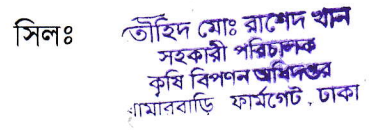 সিলঃ তৌহিদ মোঃ রাশেদ খান
সহকারী পরিচালক
কৃষি বিপণন অধিদপ্তর
খামারবাড়ি ফার্মগেট, ঢাকা